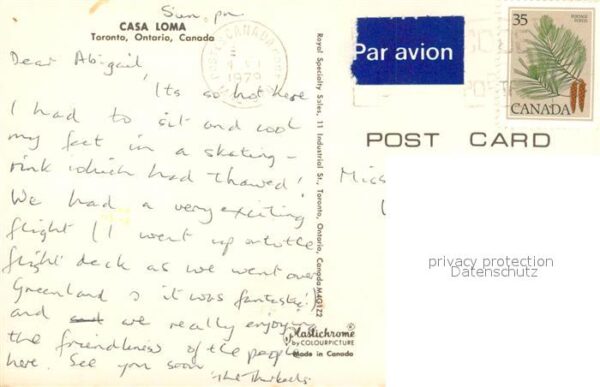 Sun. pm
CASA LOMA
Toronto, Ontario, Canada
Dear Abigail,
Its so hot here
I had to sit and cool
my feet in a skating-
rink which had thawed!
We had a very exciting
flight (I went up onto the
flight deck as we went over
Greenland & it was fantastic!)
and we really enjoying
the friendliness of the people
here. See you soon
Royal Specialty Sales, 11 Industrial St., Toronto, Ontario, Canada M4G1Z2
Plastichrome®
by COLOURPICTURE
Made in Canada
CANADA
1979
Par avion
35
POSTAGE
POSTES
CANADA
POST CARD
Miss
privacy protection
Datenschutz